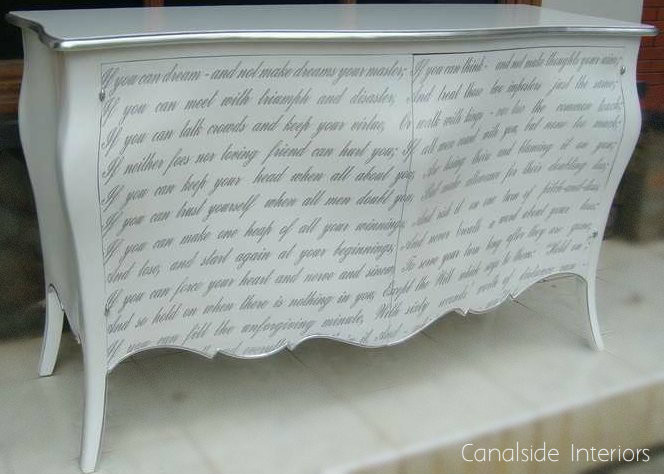 If you can dream - and not make dreams your master;
If you can meet with triumph and disaster,
If you can talk crowds and keep your virtue,
If neither foes nor loving friend can hurt you;
If you can keep your head when all about you
If you can trust yourself when all men doubt you
If you can make one heap of all your winnings
And lose, and start again at your beginnings
If you can force your heart and nerve and sinew
And so hold on when there is nothing in you,
If you can fill the unforgiving minute,
If you can think - and not make thoughts your aim;
And treat those two imposters just the same;
Or walk with kings - nor lose the common touch,
If all men count with you, but none too much;
Are losing theirs and blaming it on you,
But make allowance for their doubting
And risk it on one turn of pitch-and-toss,
And never breath a word about your loss;
To serve your turn long after they are gone,
Except the Will which says to them: "Hold on!";
With sixty seconds' worth of distance
Canalside Interiors